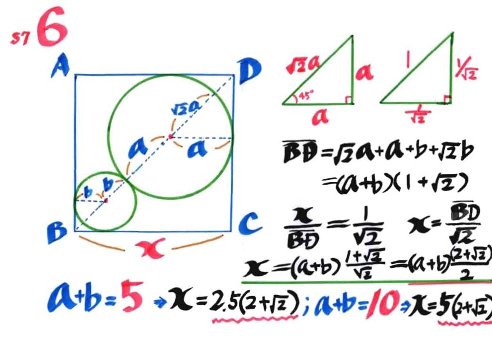 57 6
A
D
B
C
√2a
a
a
b
b
x
√2a
a
45°
a
1
1/√2
1/√2
BD=√2a+a+b+√2b
=(a+b)(1+√2)
x/BD=1/√2 x=BD/√2
x=(a+b)(1+√2)/√2=(a+b)(2+√2)/2
a+b=5→x=2.5(2+√2);a+b=10→x=5(2+√2)